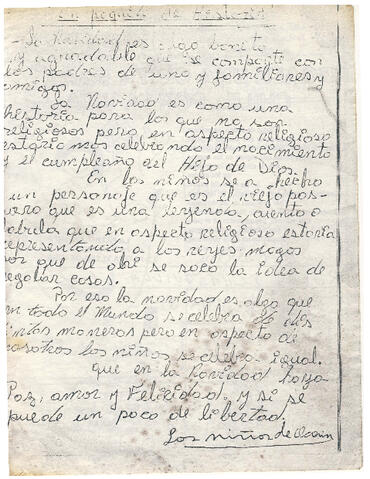 un pequeño de Historia
- La Navidad es algo bonito
y agradable que se comparte con
los padres de uno y familiares y
amigos.
La Navidad es como una
historia para los que no son
religiosos pero en aspecto religioso
estaria mos celebrando el nacimiento
y el cumpleaño del Hijo de Dios.
En los niños se a hecho
un personaje que es el viejo pas-
cuero que es una leyenda, cuento o
fabula que en aspecto religioso estaria
representando a los reyes magos
por que de ahi se saco la idea de
regalar cosas.
Por eso la navidad es algo que
en todo el Mundo se celebra de dis
tintas maneras pero en aspecto de
nosotros los niños se celebra igual.
que en la Navidad haya
Paz, amor y Felicidad. y si se
puede un poco de libertad.
Los niños de